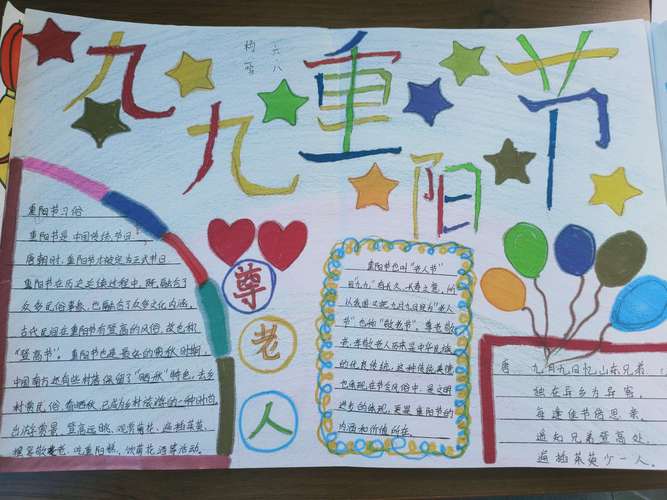 九九重阳节
六八
重阳节习俗
重阳节是中国传统节日!
唐朝时,重阳节才被定为正式节日.
重阳节在历史延续过程中,既融合了
众多民俗事象,也融合了众多文化内涵,
古代民间在重阳节有登高的风俗,故也称
"登高节"。重阳节也是最好的赏秋时期,
中国南方还有些村落保留了"晒秋"特色,去乡
村赏民俗、看晒秋,已成为乡村旅游的一种时尚
出游赏景、登高远眺、观赏菊花、遍插茱萸、
吃重阳糕、饮菊花酒等活动.
尊
老
人
重阳节也叫"老人节"
因"九九"与"久久,长寿之意,所
以我国又把九月九日定为"老人
节"也称"敬老节"。尊老敬
老,孝敬老人历来是中华民族
的优良传统,这种传统美德
也体现在节令民俗中,是文明
进步的体现,更是重阳节的
内涵和价值所在。
唐 九月九日忆山东兄弟:
独在异乡为异客,
每逢佳节倍思亲.
遥知兄弟登高处,
遍插茱萸少一人。